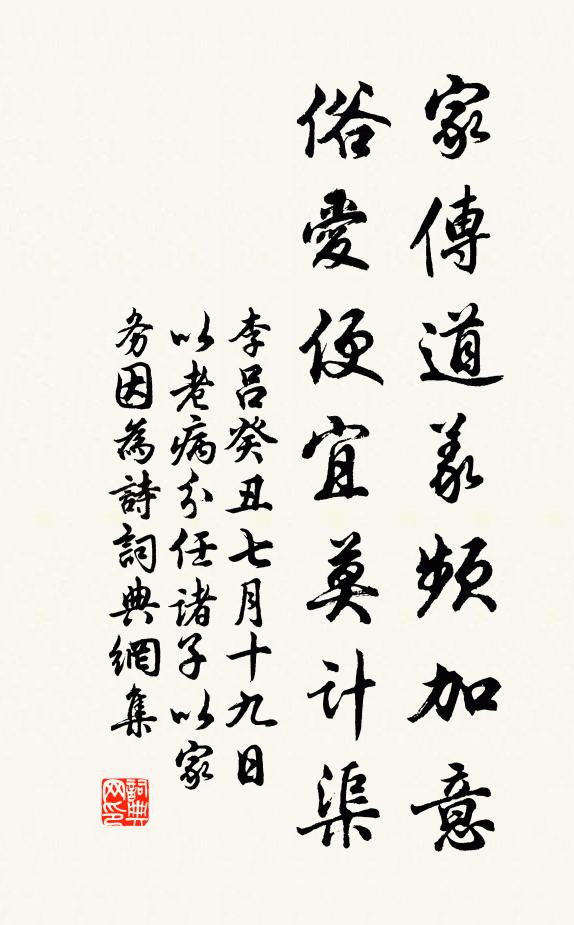 家傳道義頻加意
俗愛便宜莫計渠
李呂癸丑七月十九日
以老病分任諸子以家
务因為詩詞典網集
詞典网印